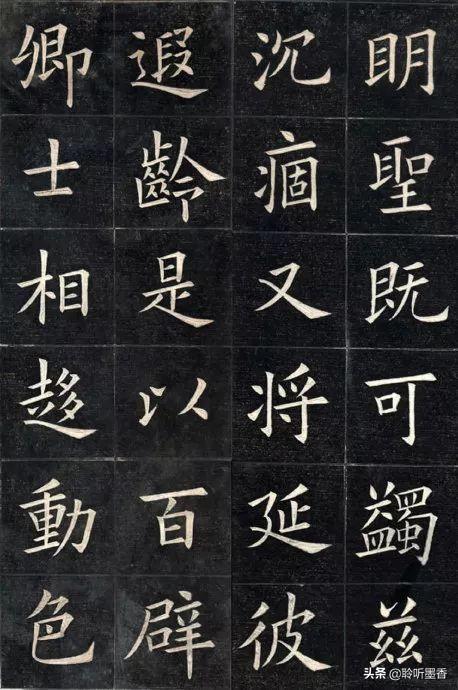 眀聖既可蠲兹
沉痼又将延彼
遐齡是以百辟
卿士相趍動色
头条 @聆听墨香